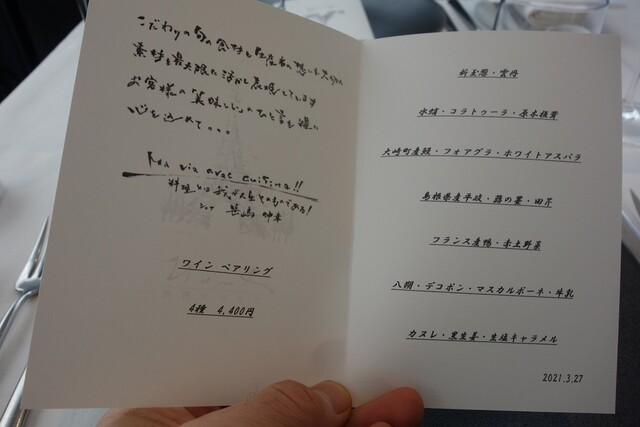 こだわりの旬の食材と生産者の想いを大切に
素材を最大限に活かし表現しています
お客様の「美味しい」のひと言を糧に
心を込めて...
Ma vie avec cuisine!!
料理とは我が人生そのものである!
ワイン ペアリング
4種 4,400円
新玉葱・雲丹
水蛸・コラトゥーラ・原木椎茸
大崎町産鰻・フォアグラ・ホワイトアスパラ
島根県産平政・蕗の薹・田芹
フランス産鴨・赤土野菜
八朔・デコポン・マスカルポーネ・牛乳
カヌレ・黒生姜・生塩キャラメル
2021.3.27